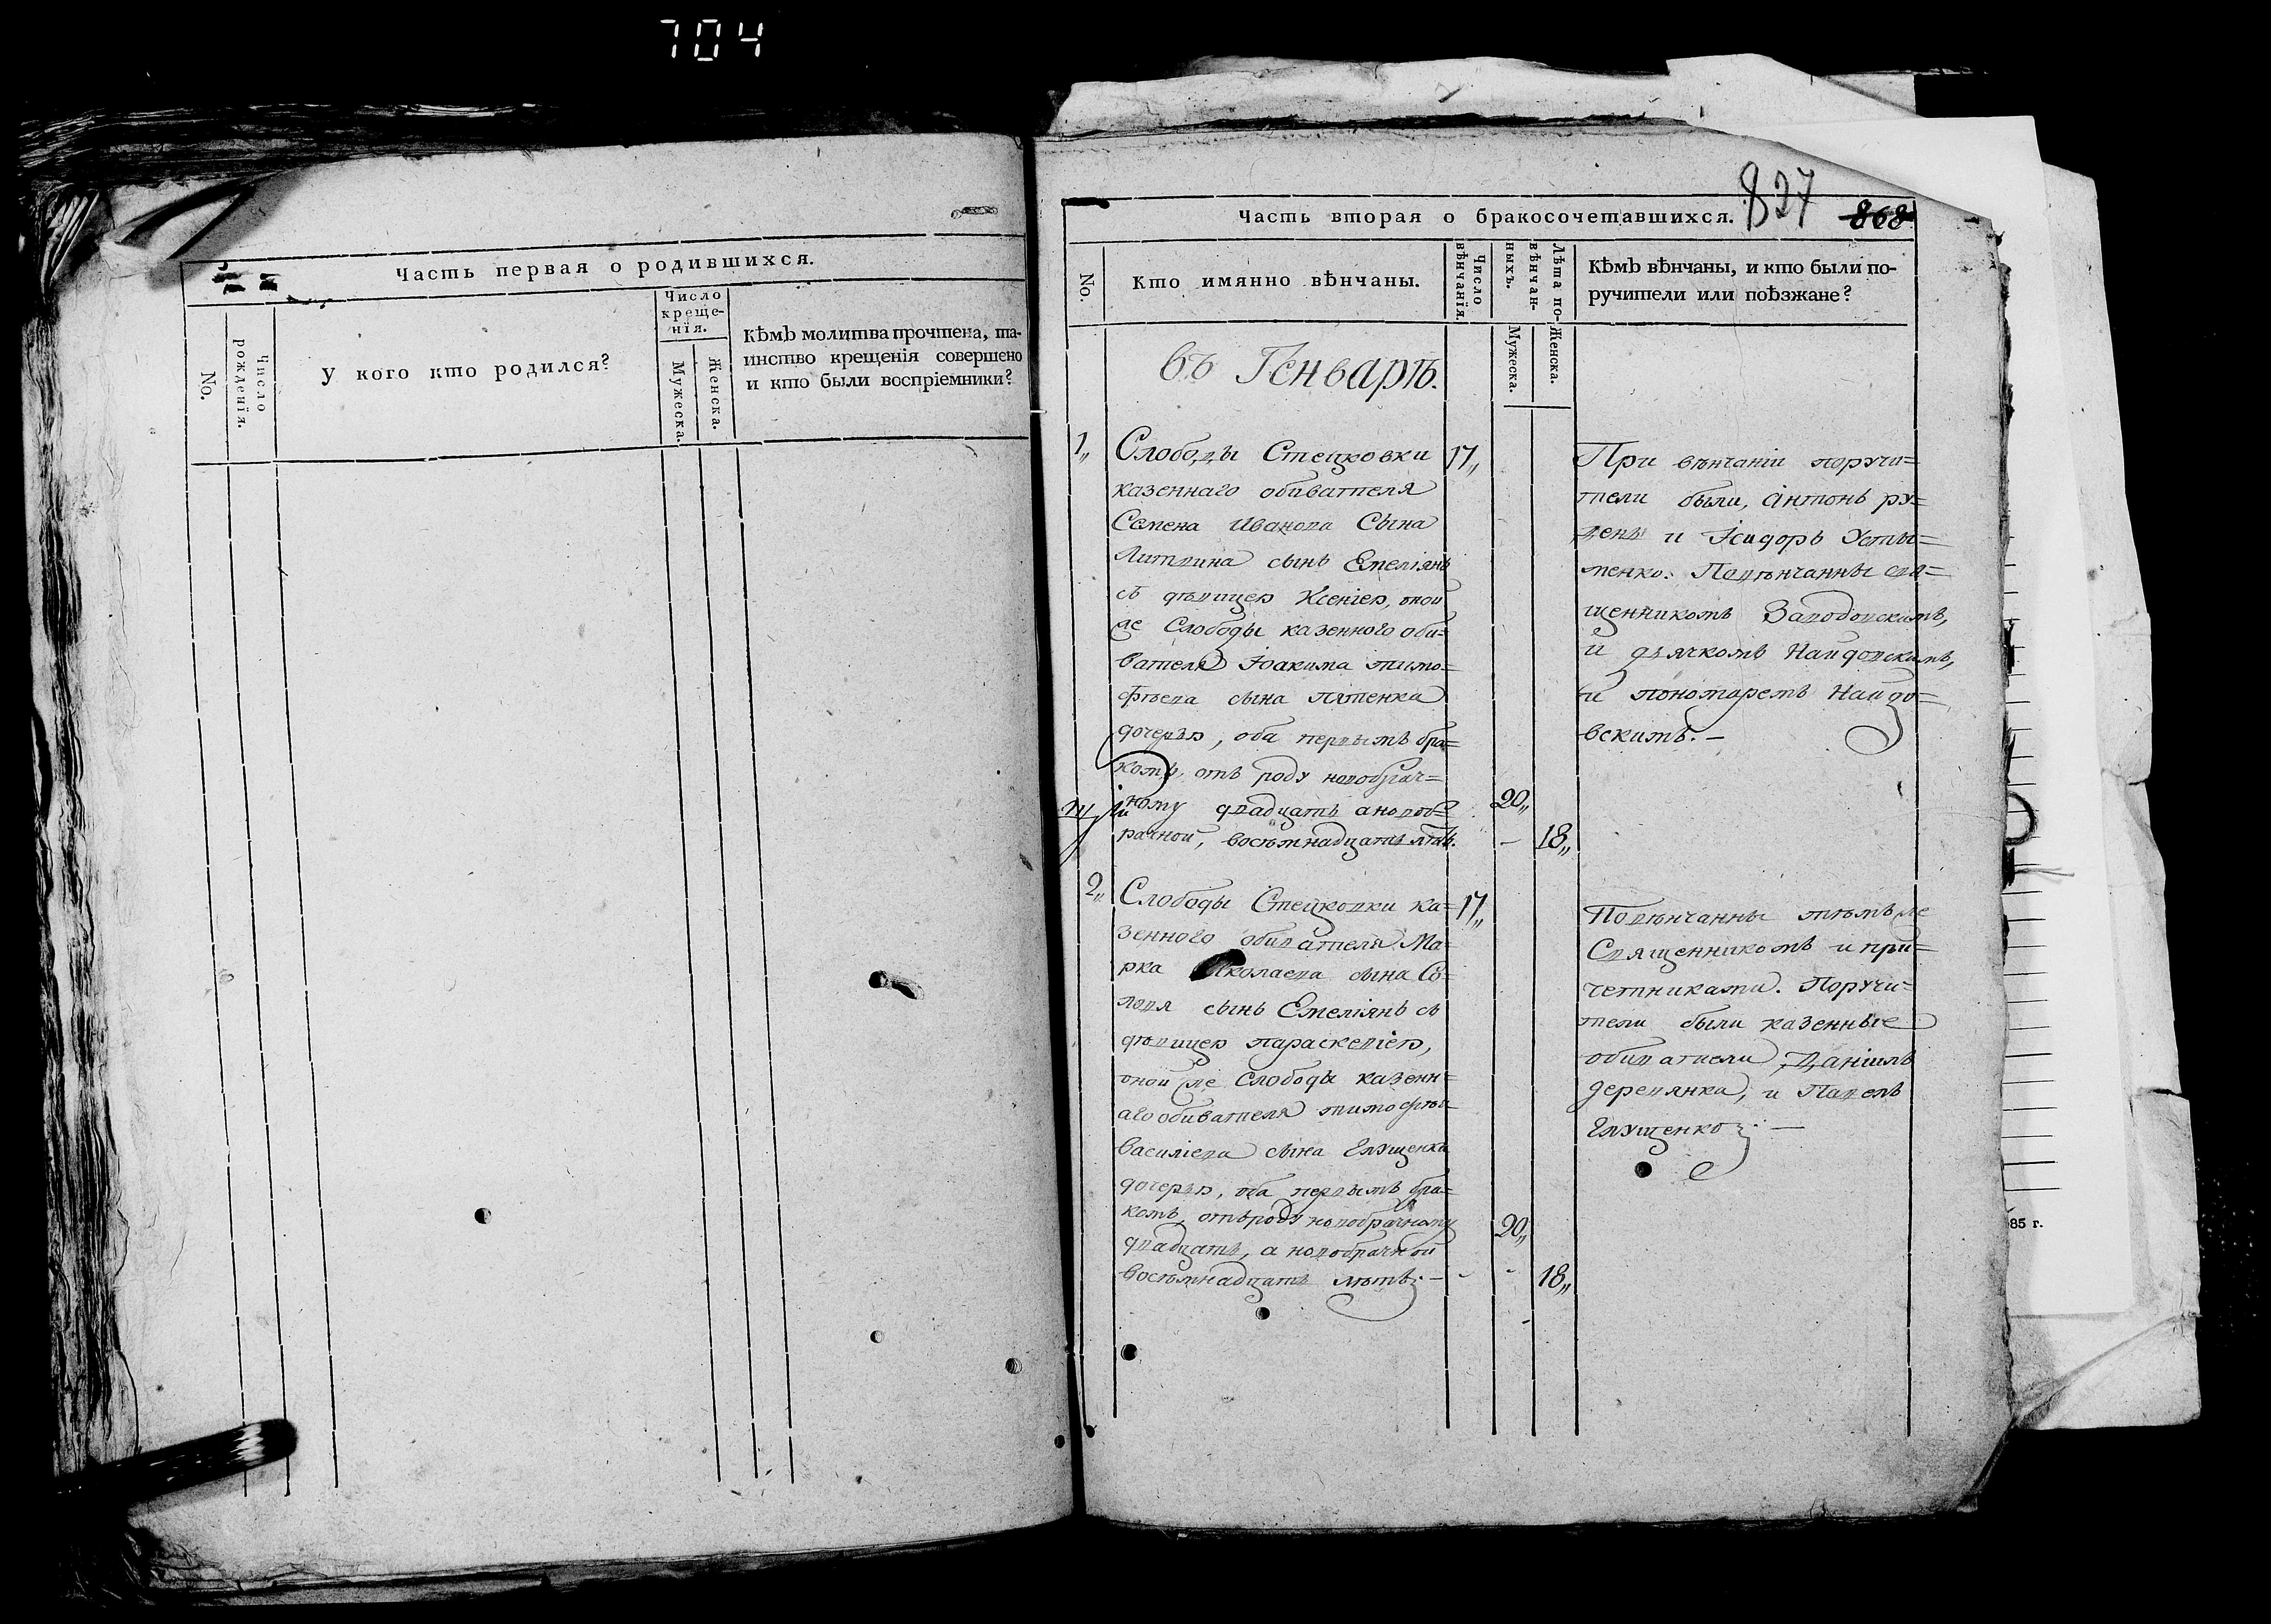 704
Часть первая о родившихся.
No.
Число рожденія.
У кого кто родился?
Число крещенія.
Мужеска.
Женска.
Кѣмъ молитва прочтена, та-
инство крещенія совершено
и кто были воспріемники?
827
868
Часть вторая о бракосочетавшихся.
No.
Кто имянно вѣнчаны.
Число вѣнчанія.
Лѣта по-
вѣнчан-
ныхъ.
Мужеска.
Женска.
Кѣмъ вѣнчаны, и кто были по-
ручители или поѣзжане?
въ Генварѣ.
1,, Слободы Стецковки 17,,
казеннаго обивателя
Семена Иванова Сына
Литвина сынъ Емеліянъ
съ дѣвицею Ксеніею, оной
же Слободы казенного оби=
вателя Іоакима тимо=
фѣева сына Пятенка
дочерью, оба первымъ бра=
комъ, отъ роду новобрач=
ному двадцать а новоб= 20,,
рачной, восѣмнадцать лѣтъ. – 18,,
При вѣнчаніи поручи=
тели были, Антонъ ру=
день и Ісидоръ Усты=
менко. Повѣнчанны свя=
щенникомъ Заводовскимъ,
и дьячкомъ Наидовскимъ,
и пономаремъ Наидо=
вскимъ. –
2,, Слободы Стецковки ка= 17,,
зенного обивателя Ма=
рка Николаева сына Со=
ловя сынъ Емеліянъ съ
дѣвицею параскевіею,
оной же Слободы казенн=
аго обивателя тимофѣя
василіева сына Глущенка
дочерью, оба первымъ бра=
комъ, отъ роду новобрачному 20,,
двадцать, а новобрачной
восѣмнадцать лѣтъ. – 18,,
Повѣнчанны тѣмъ же
Священникомъ и при=
четниками. Поручи=
тели были казенные
обиватели, Даніилъ
деревянка, и Павелъ
Глущенко. –
85 г.